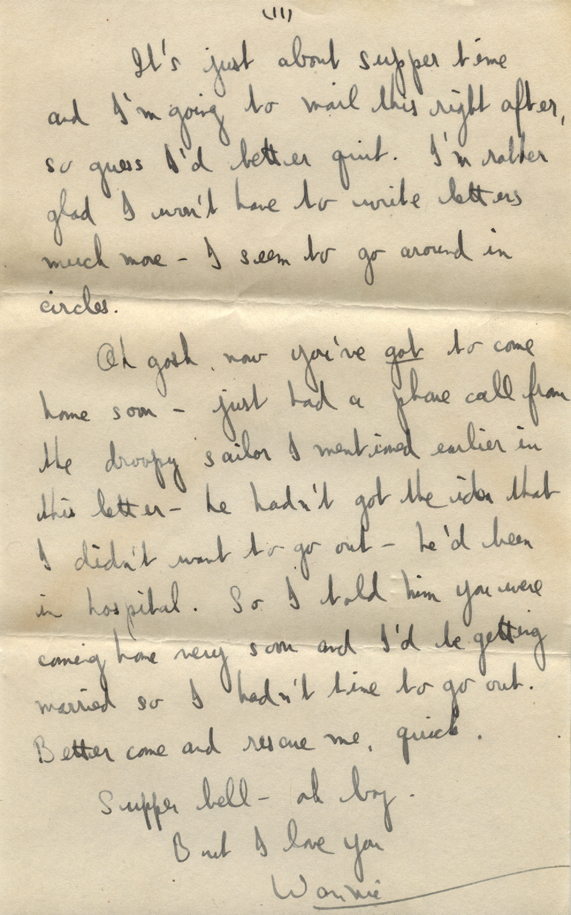 (11)
It's just about supper time
and I'm going to mail this right after,
so guess I'd better quit. I'm rather
glad I won't have to write letters
much more - I seem to go around in
circles.
Oh gosh, now you've got to come
home soon - just had a phone call from
the droopy sailor I mentioned earlier in
this letter - he hadn't got the idea that
I didn't want to go out - he'd been
in hospital. So I told him you were
coming home very soon and I'd be getting
married so I hadn't time to go out.
Better come and rescue me, quick.
Supper bell - oh boy.
But I love you